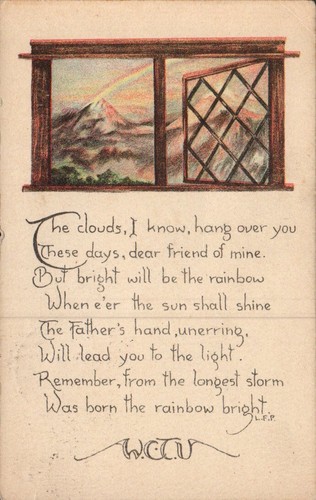 The clouds, I know, hang over you
These days, dear friend of mine.
But bright will be the rainbow
When e'er the sun shall shine
The Father's hand, unerring,
Will lead you to the light.
Remember, from the longest storm
Was born the rainbow bright.
L.F.P.
W.C.T.U